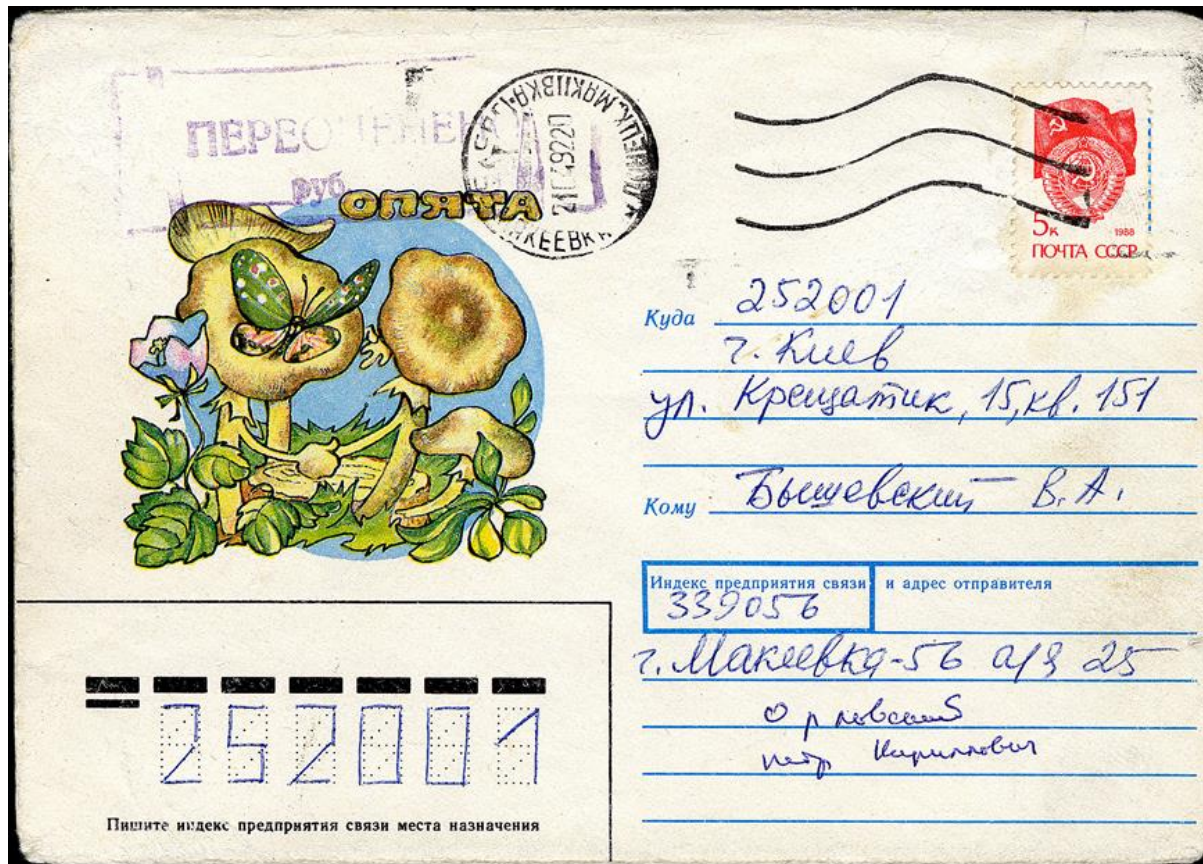 ПЕРЕОЦЕНЕНО
руб.
ОПЯТА
МАКІІВКА
ДОНЕЦК.
МАКЕЕВКА
5к
1988
ПОЧТА СССР
Куда 252001
г. Киев
ул. Крещатик, 15, кв. 151
Кому Бышевский В.А.
Индекс предприятия связи и адрес отправителя
339056
г. Макеевка-56 а/я 25
Петр Кириллович
252001
Пишите индекс предприятия связи места назначения